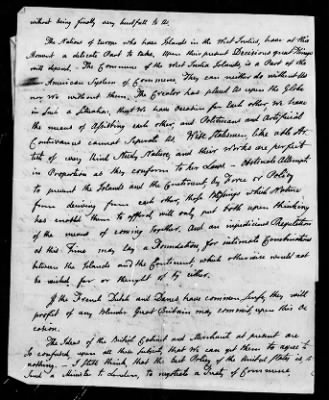 without being finally very hurtfull to Us.
The Nations of Europe who have Islands in the West Indies, have at this
Moment a delicate Part to take. Upon their present Decisions great Things
will depend. The Commerce of the West India Islands, is a Part of the
American System of Commerce. They can neither do without Us
nor We without them. The Creator has placed Us upon the Globe
in Such a Situation, that We have Occasion for each other. We have
the means of Assisting each other, and Politicians and Artificial
Contrivances cannot Separate Us. Wise Statesmen, like able Art-
ists of every Kind Study Nature, and their Works are perfect
in Proportion as they conform to her Laws. Obstinate Attempts
to prevent the Islands and the Continent, by Force or Policy
from deriving from each other, those Blessings which Nature
has enabled them to afford, will only put both upon thinking
of the means of coming together. And an injudicious Regulation
at this Time may lay a Foundation for intimate Combinations
between the Islands and the Continent, which otherwise would not
be wished for or thought of by either.
If the French Dutch and Danes have common Sense, they will
profit of any blunder Great Britain may commit, upon this Oc
casion.
The Ideas of the British Cabinet and Merchants at present are
So confused, upon all these Subjects, that We can get them to agree to
nothing. I still think that the best Policy of the United States, is, to
Send a Minister to London, to negotiate a Treaty of Commerce